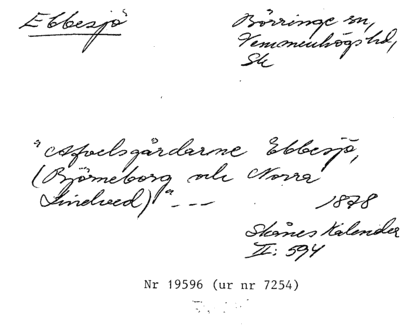 Ebbesjö
Börringe sn,
Vemmenhögs hd,
Sk
"Afvelsgårdarne Ebbesjö,
(Björneborg och Norra
Lindved)" - - -
1878
Skånes Kalender
II: 594
Nr 19596 (ur nr 7254)